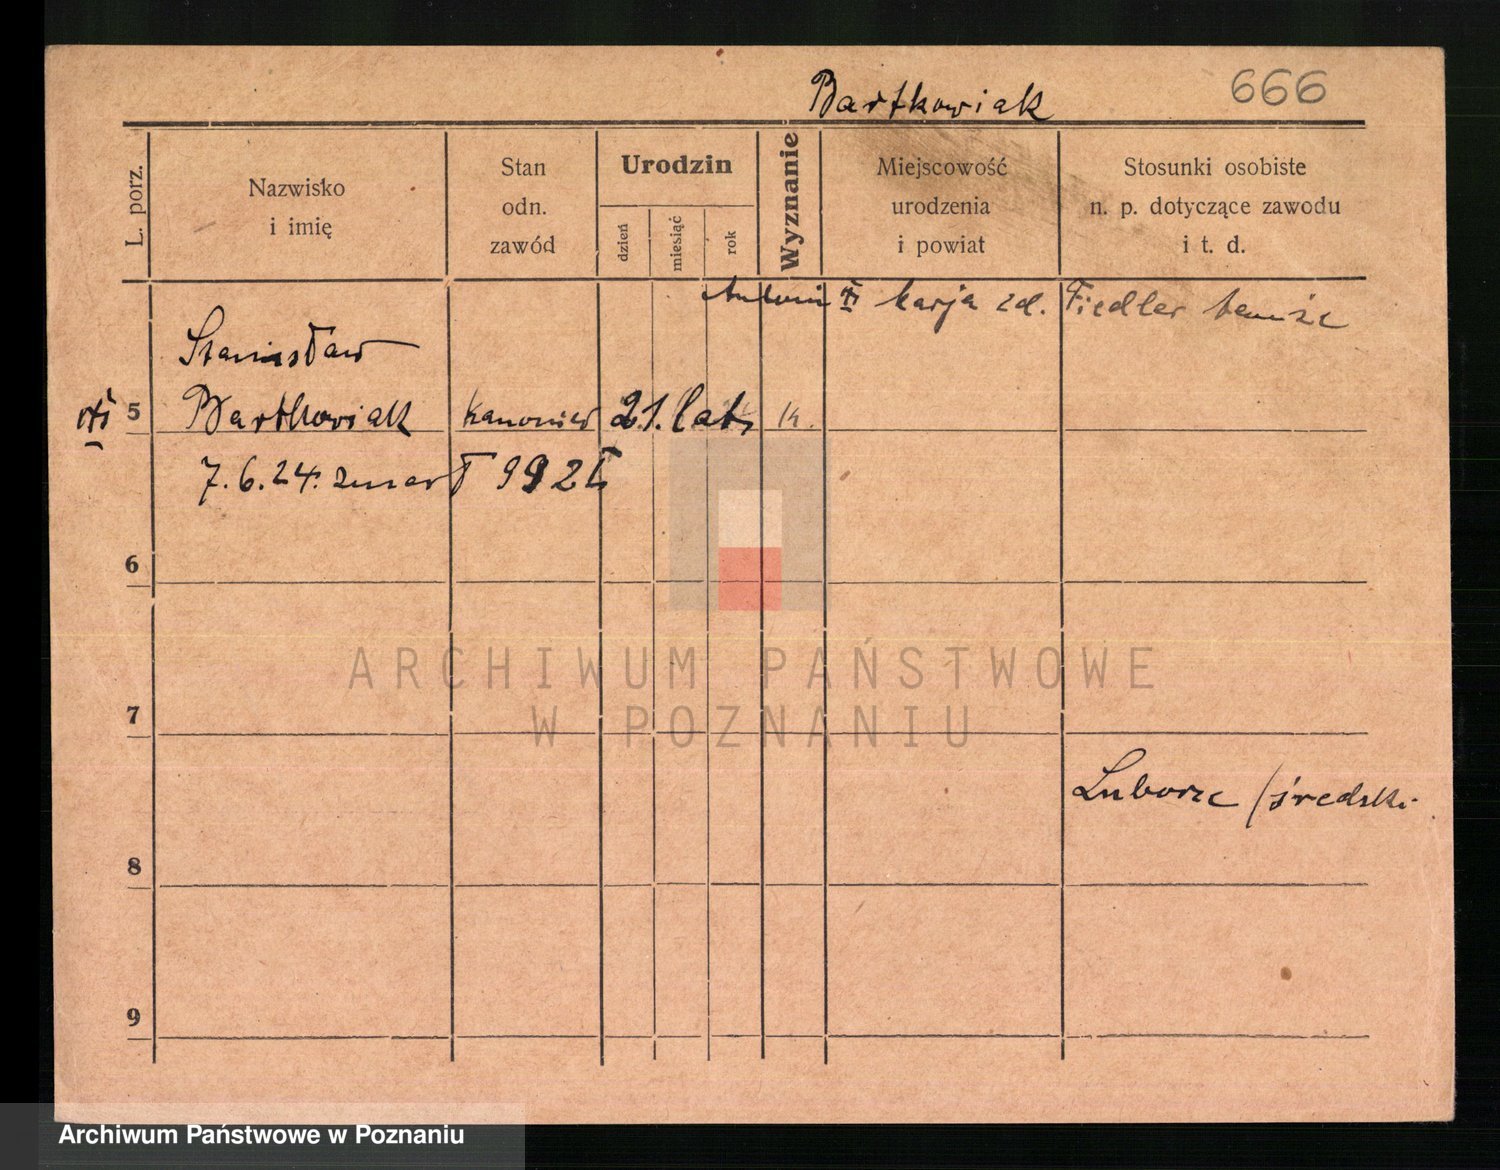 Bartkowiak 666
L. porz.
Nazwisko
i imię
Stan
odn.
zawód
Urodzin
dzień
miesiąc
rok
Wyznanie
Miejscowość
urodzenia
i powiat
Stosunki osobiste
n. p. dotyczące zawodu
i t. d.
Antoni Marja zd. Fiedler
Stanisław
5 Bartkowiak kanonier 21. lat k.
7. 6. 24. zmarł
6
7
Luborze / średzki
8
9
ARCHIWUM PAŃSTWOWE
W POZNANIU
Archiwum Państwowe w Poznaniu